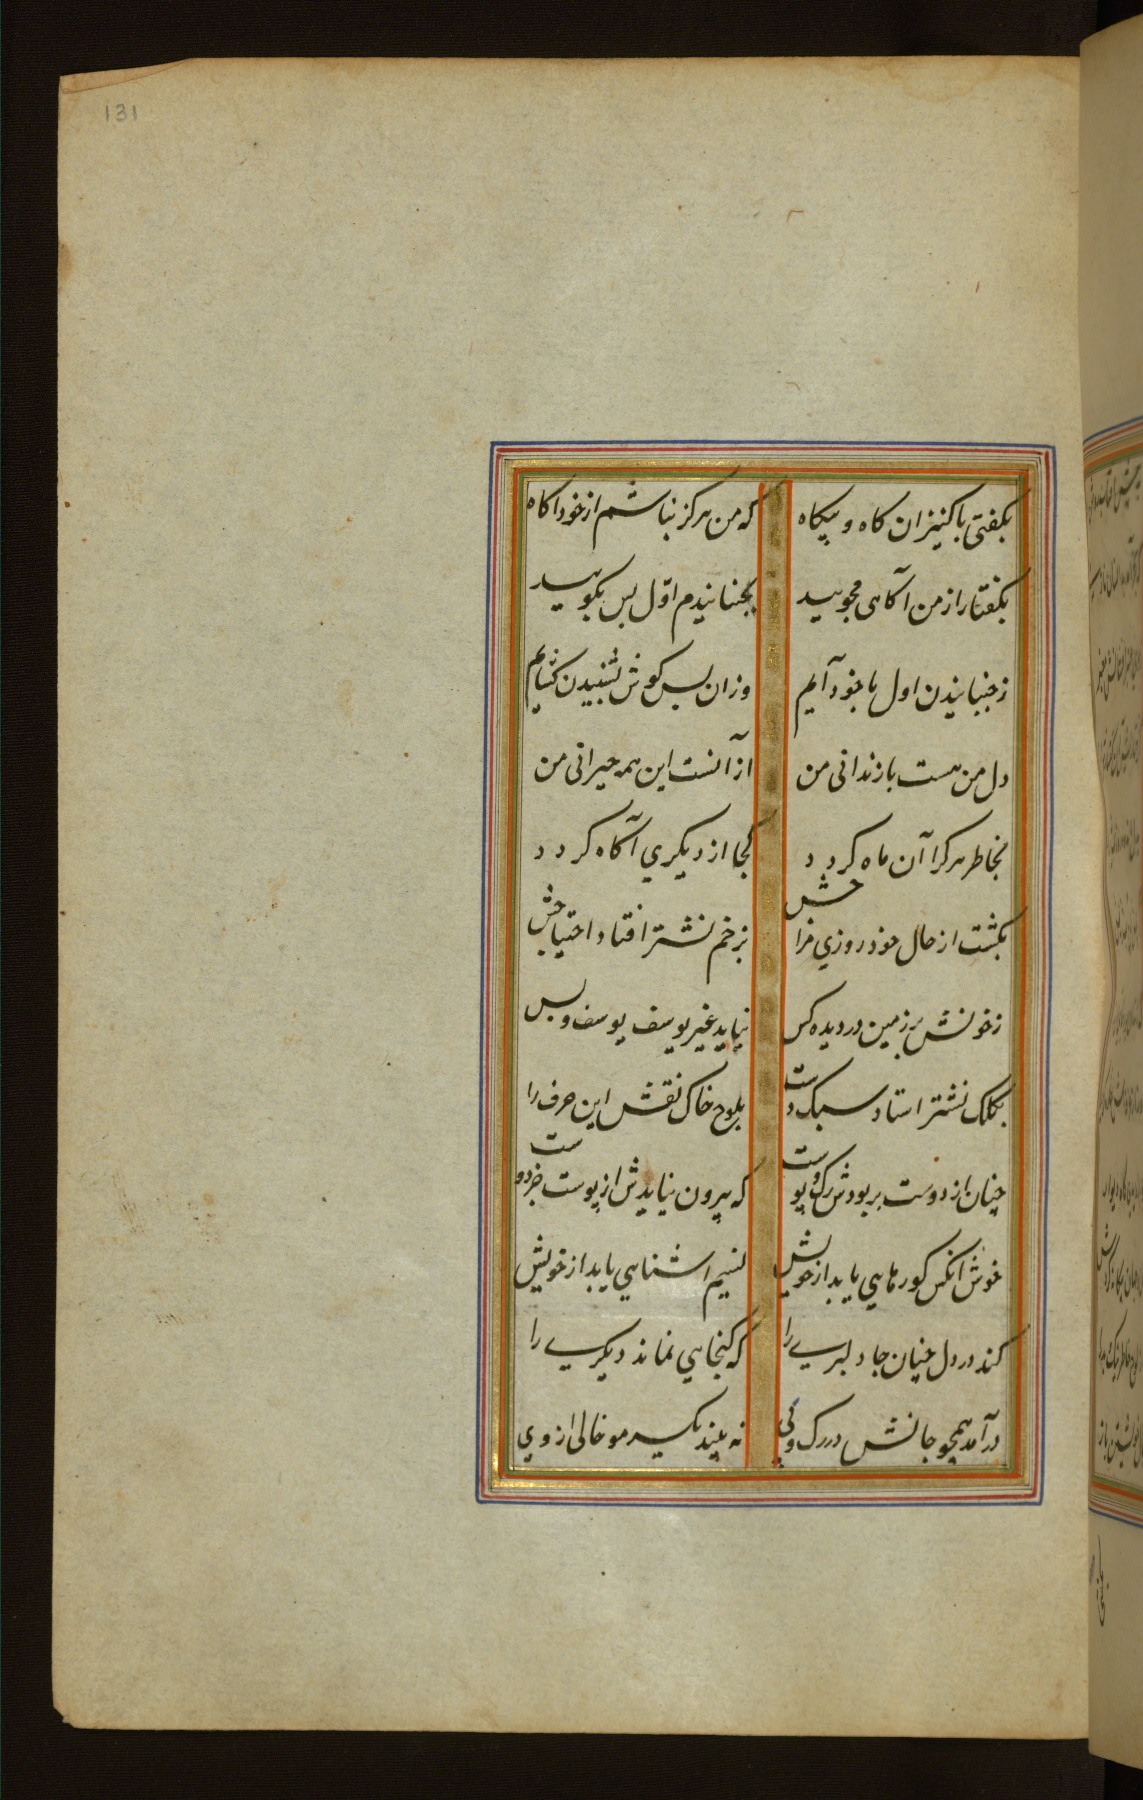 131
بکفتی با کنیزان کاه و بیکاه که من هرکز نباشم از خود اکاه
بکفتار از من آکاهی مجویید بجنبانیدم اوّل پس بکویید
ز جنبانیدن اول با خود آیم وزان پس کوش شنیدن کشایم
دل من هست با زندانی من از آنست این همه حیرانی من
بخاطر هرکرا آن ماه کردد کجا از دیکری آکاه کردد
بکشت از حال خود روزی مزاجش بزخم نشتر افتاد احتیاجش
ز خونش بر زمین در دیده کس نیاید غیر یوسف یوسف و بس
بکلک نشتر استاد سبک دست بلوح خاک نقش این حرف را
چنان از دوست بر بودش رک و پوست که بیرون نیایدش از پوست جز دوست
خوش انکس کو رهایی یابد از خویش نسیم اشنایی یابد از خویش
کند در دل چنان جا دلبری را که کنجایی نماند دیکری را
درآمد همچو جانش در رک و پی نه بیند یکسر مو خالی از وی